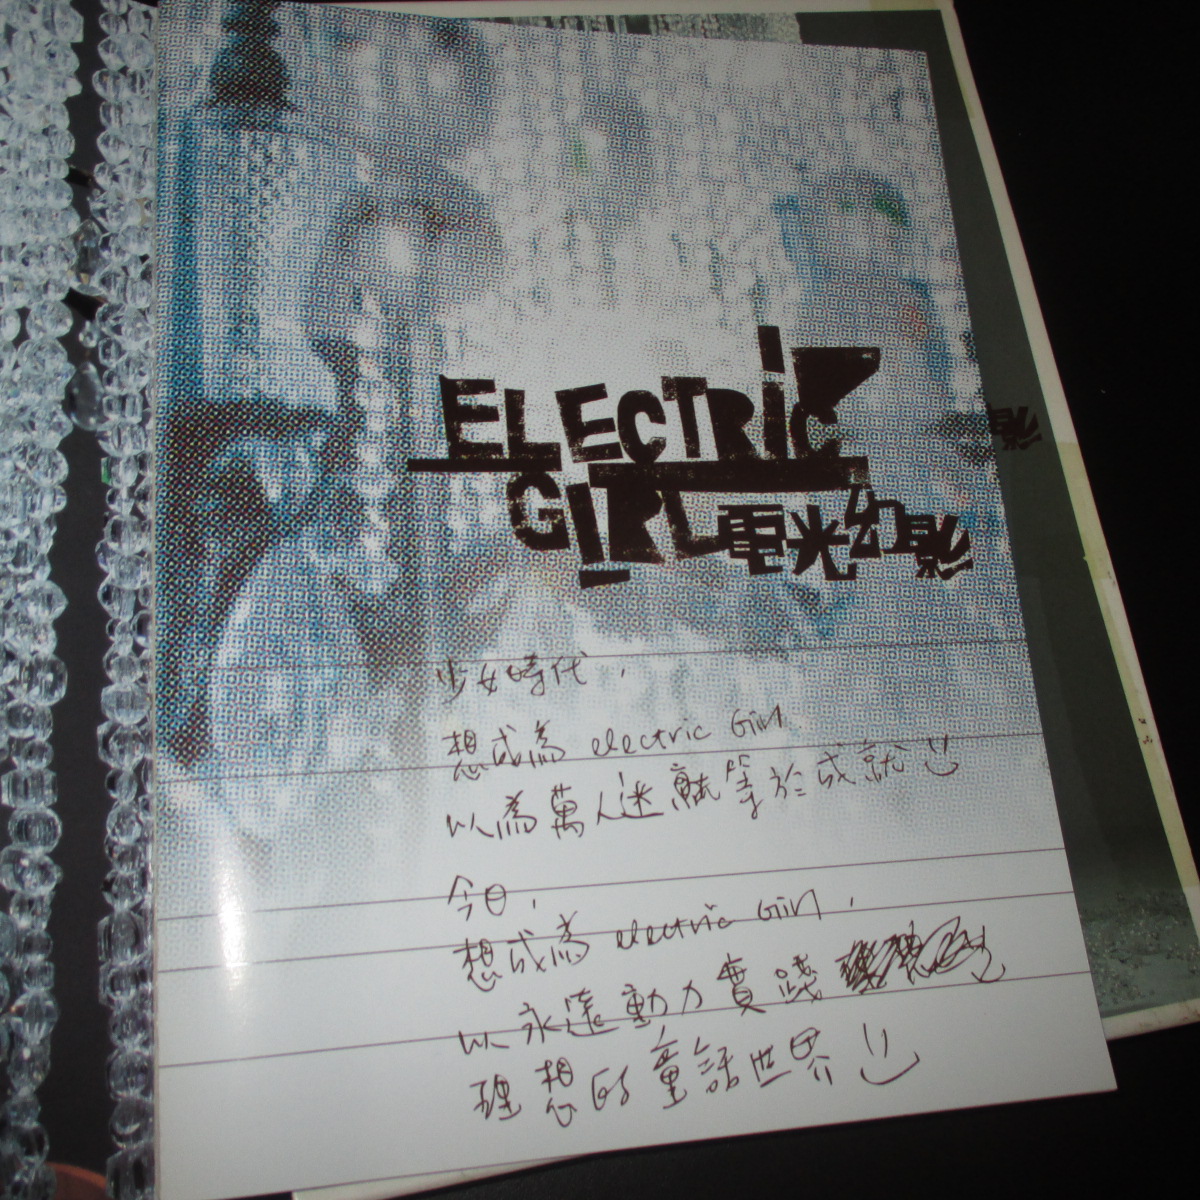 ELECTRIC
GIRL電光幻影
影
少女時代，
想成為 electric Girl
以為萬人迷魅等於成就
今日，
想成為 electric Girl，
以永遠動力實踐
理想的童話世界